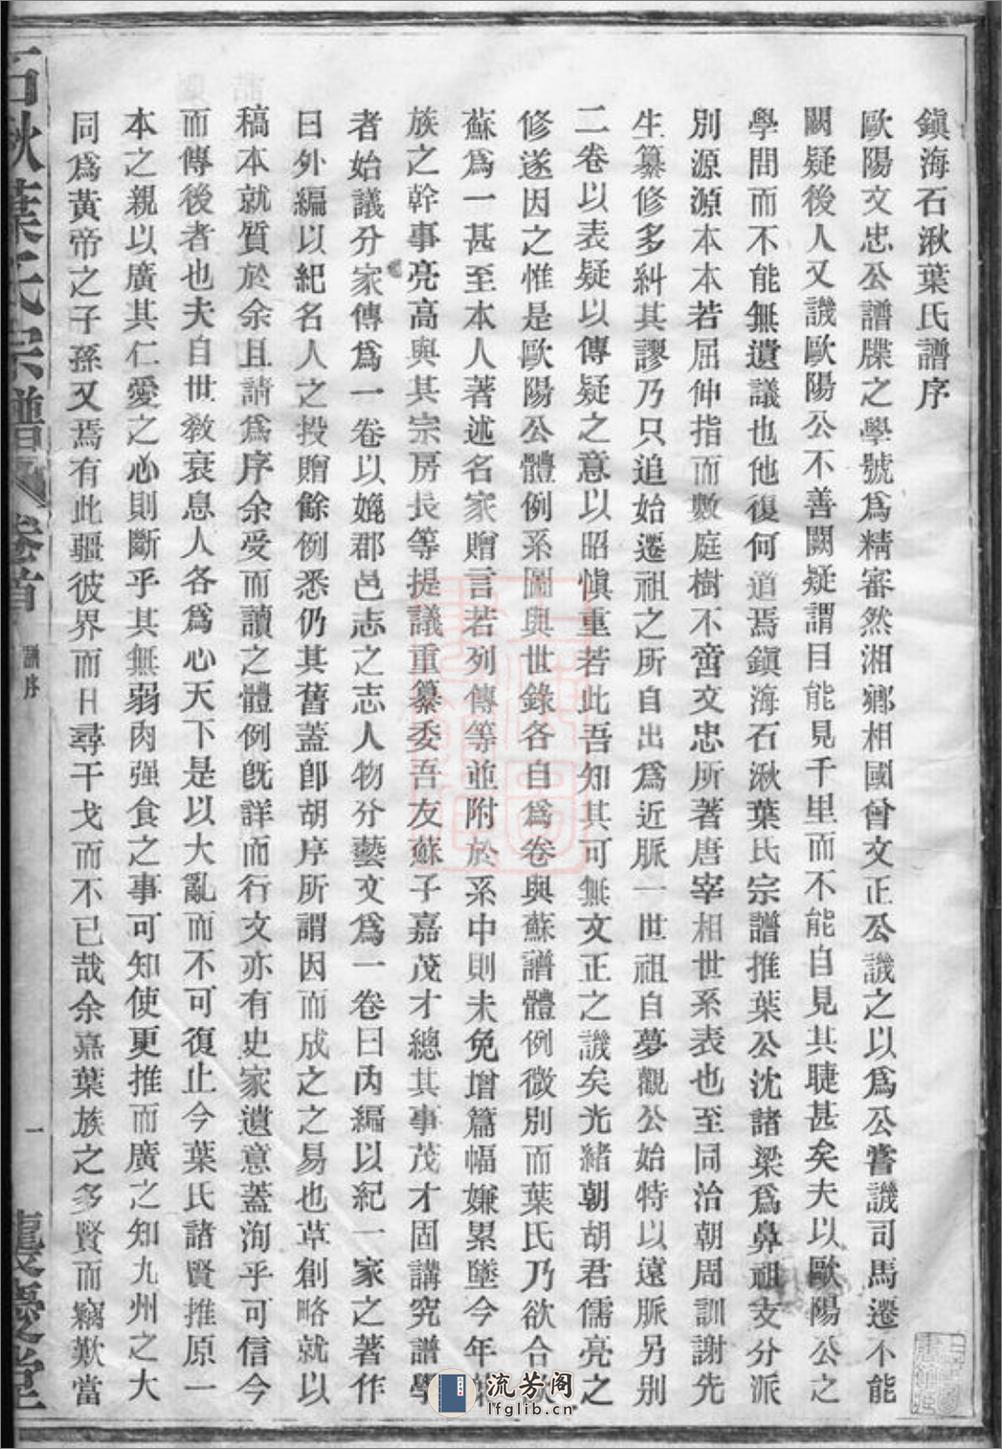 鎭海石湫葉氏譜序
歐陽文忠公譜牒之學號爲精審然湘鄉相國曾文正公譏之以爲公嘗譏司馬遷不能
闕疑後人又譏歐陽公不善闕疑謂目能見千里而不能自見其睫甚矣夫以歐陽公之
學問而不能無遺議也他復何道焉鎭海石湫葉氏宗譜推葉公沈諸梁爲鼻祖支分派
別源源本本若屈伸指而數庭樹不啻文忠所著唐宰相世系表也至同治朝周訓謝先
生纂修多糾其謬乃只追始遷祖之所自出爲近脈一世祖自夢觀公始特以遠脈另別
二卷以表疑以傳疑之意以昭愼重若此吾知其可無文正之譏矣光緒朝胡君儒亮之
修遂因之惟是歐陽公體例系圖與世錄各自爲卷與蘇譜體例微別而葉氏乃欲合
蘇爲一甚至本人著述名家贈言若列傳等並附於系中則未免增篇幅嫌累墜今年
族之幹事亮高與其宗房長等提議重纂委吾友蘇子嘉茂才總其事茂才固講究譜學
者始議分家傳爲一卷以媲郡邑志之志人物分藝文爲一卷曰內編以紀一家之著作
曰外編以紀名人之投贈餘例悉仍其舊蓋卽胡序所謂因而成之之易也草創略就以
稿本就質於余且請爲序余受而讀之體例旣詳而行文亦有史家遺意蓋洵乎可信今
而傳後者也夫自世敎衰息人各爲心天下是以大亂而不可復止今葉氏諸賢推原一
本之親以廣其仁愛之心則斷乎其無弱肉强食之事可知使更推而廣之知九州之大
同爲黃帝之子孫又焉有此疆彼界而日尋干戈而不已哉余嘉葉族之多賢而竊歎當
石湫葉氏宗譜 卷首 譜序 一 襲慶堂
流芳阁
lfglib.cn